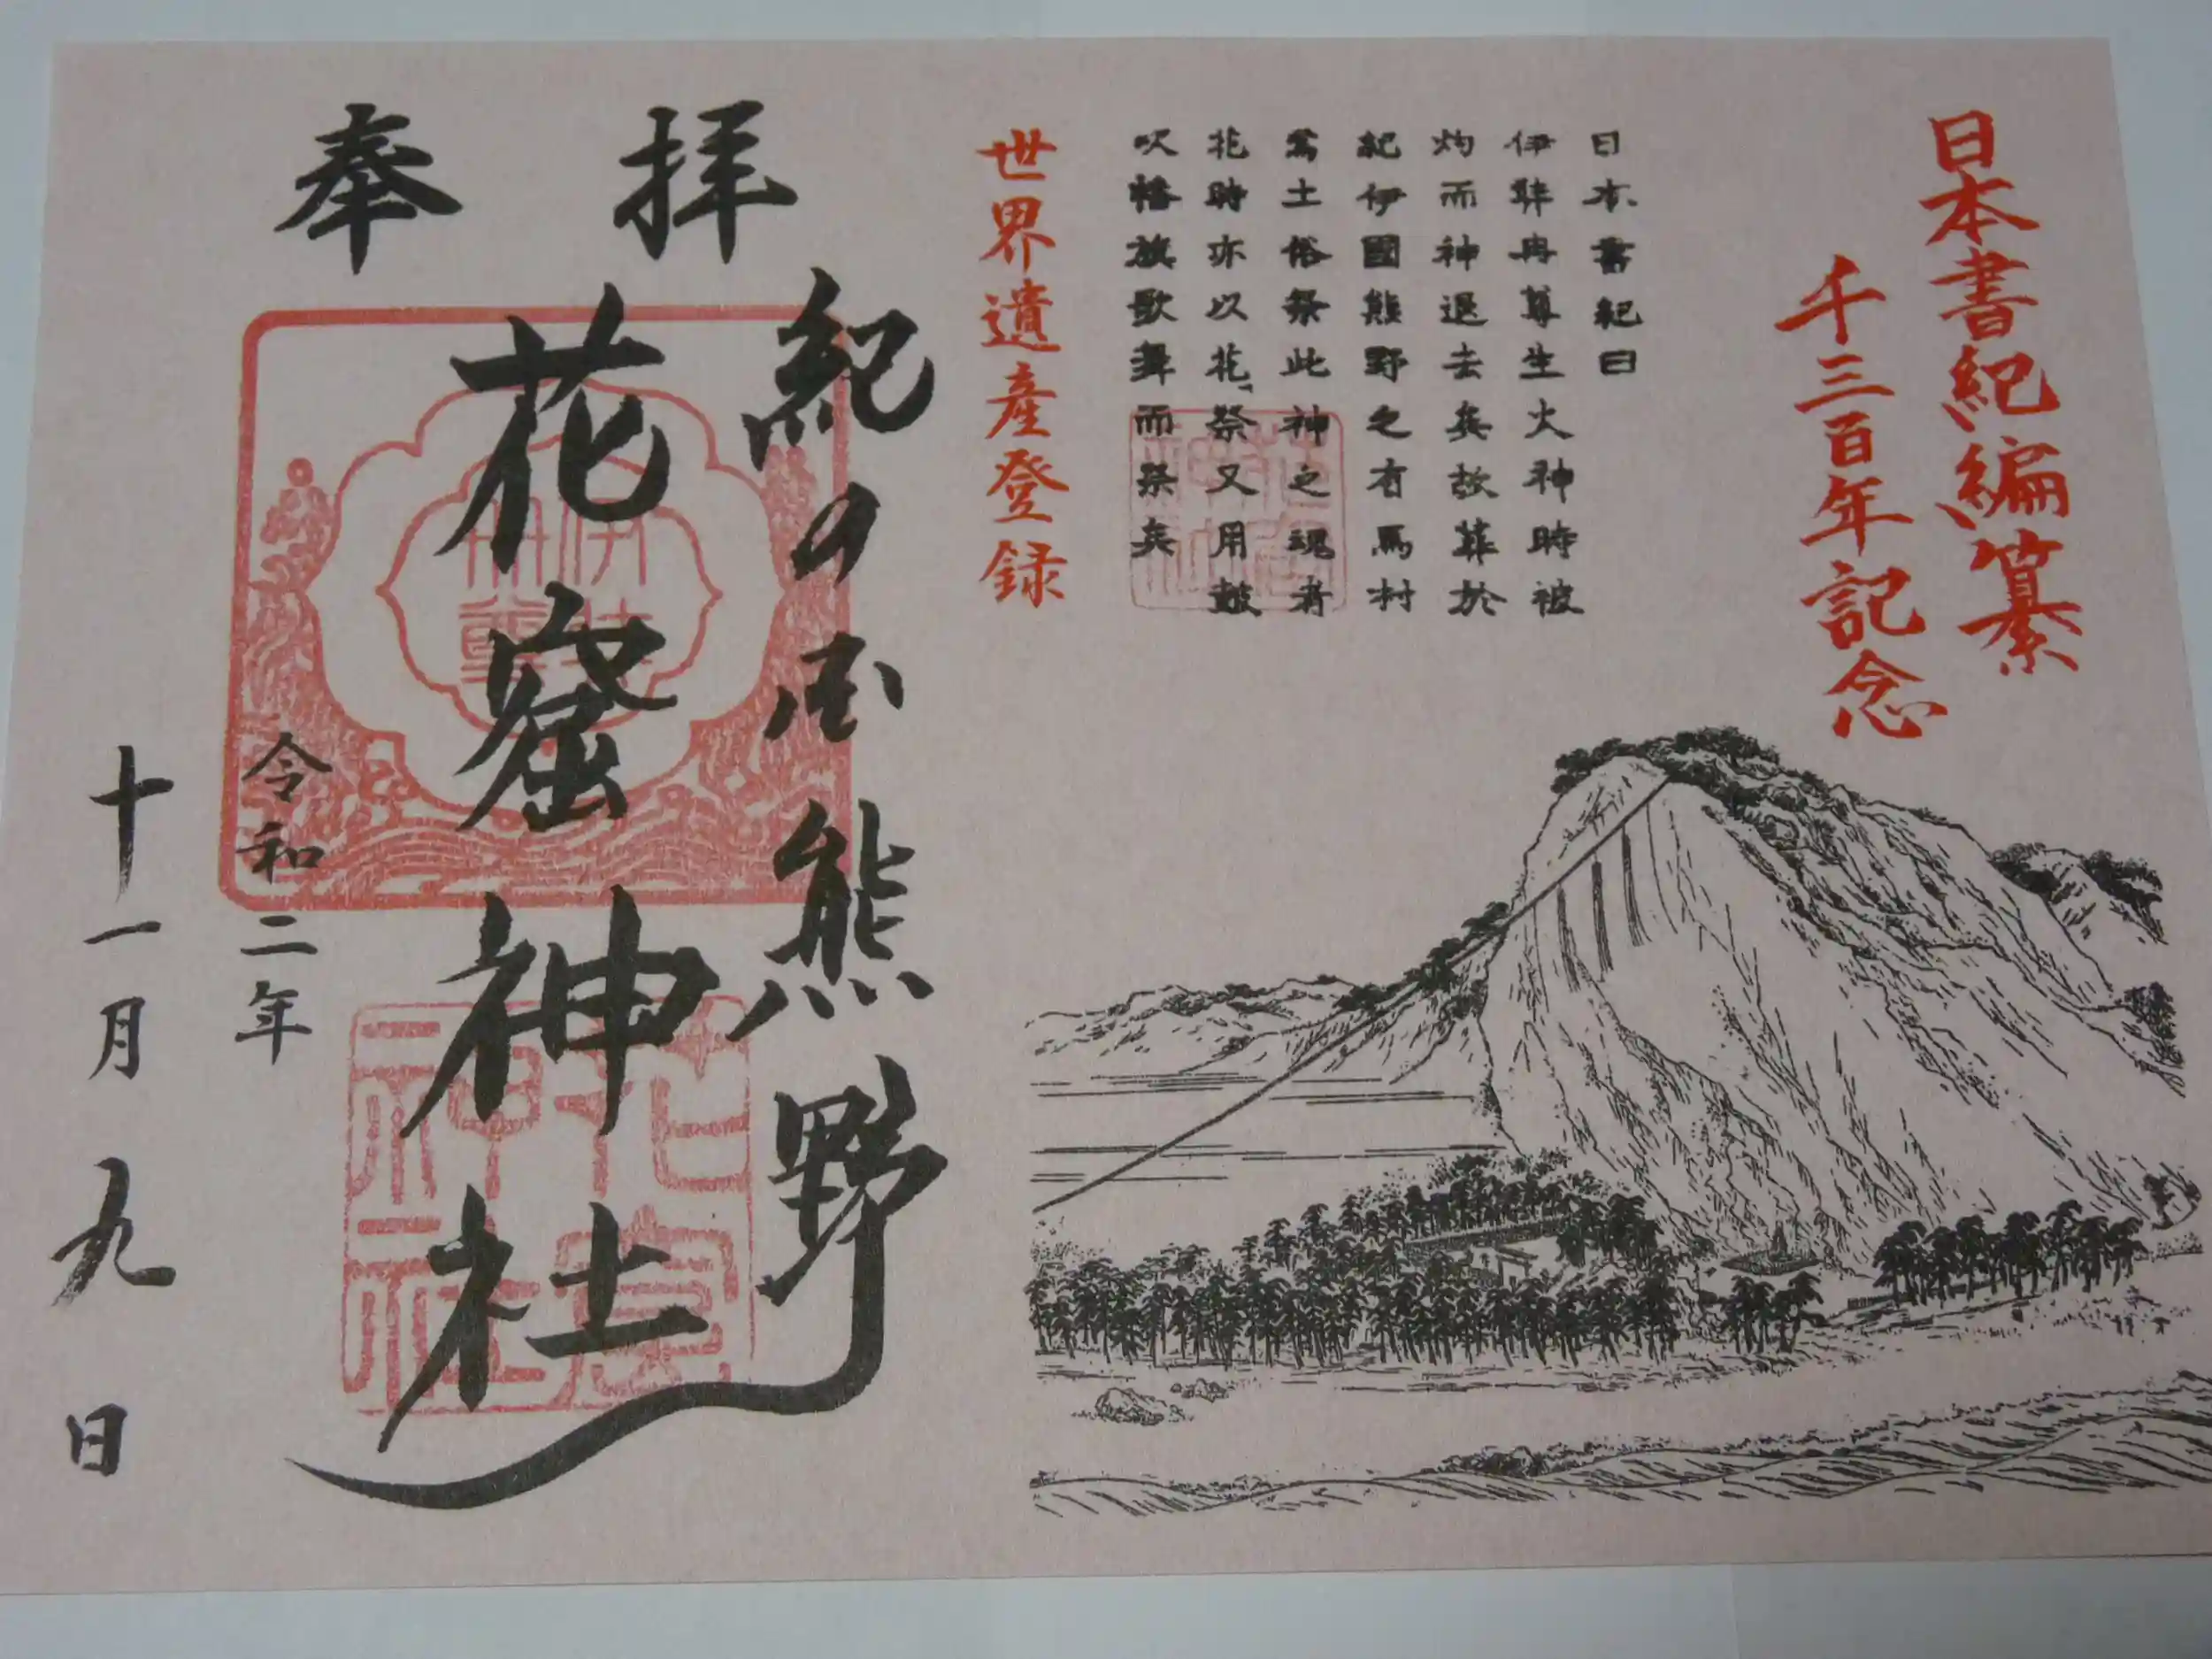 日本書紀編纂
千三百年記念
日本書紀曰
伊弉冉尊生火神時被
灼而神退去矣故葬於
紀伊國熊野之有馬村
焉土俗祭此神之魂者
花時亦以花祭又用鼓
吹幡旗歌舞而祭矣
世界遺産登録
奉拝
紀の国熊野
花窟神社
令和二年
十一月九日